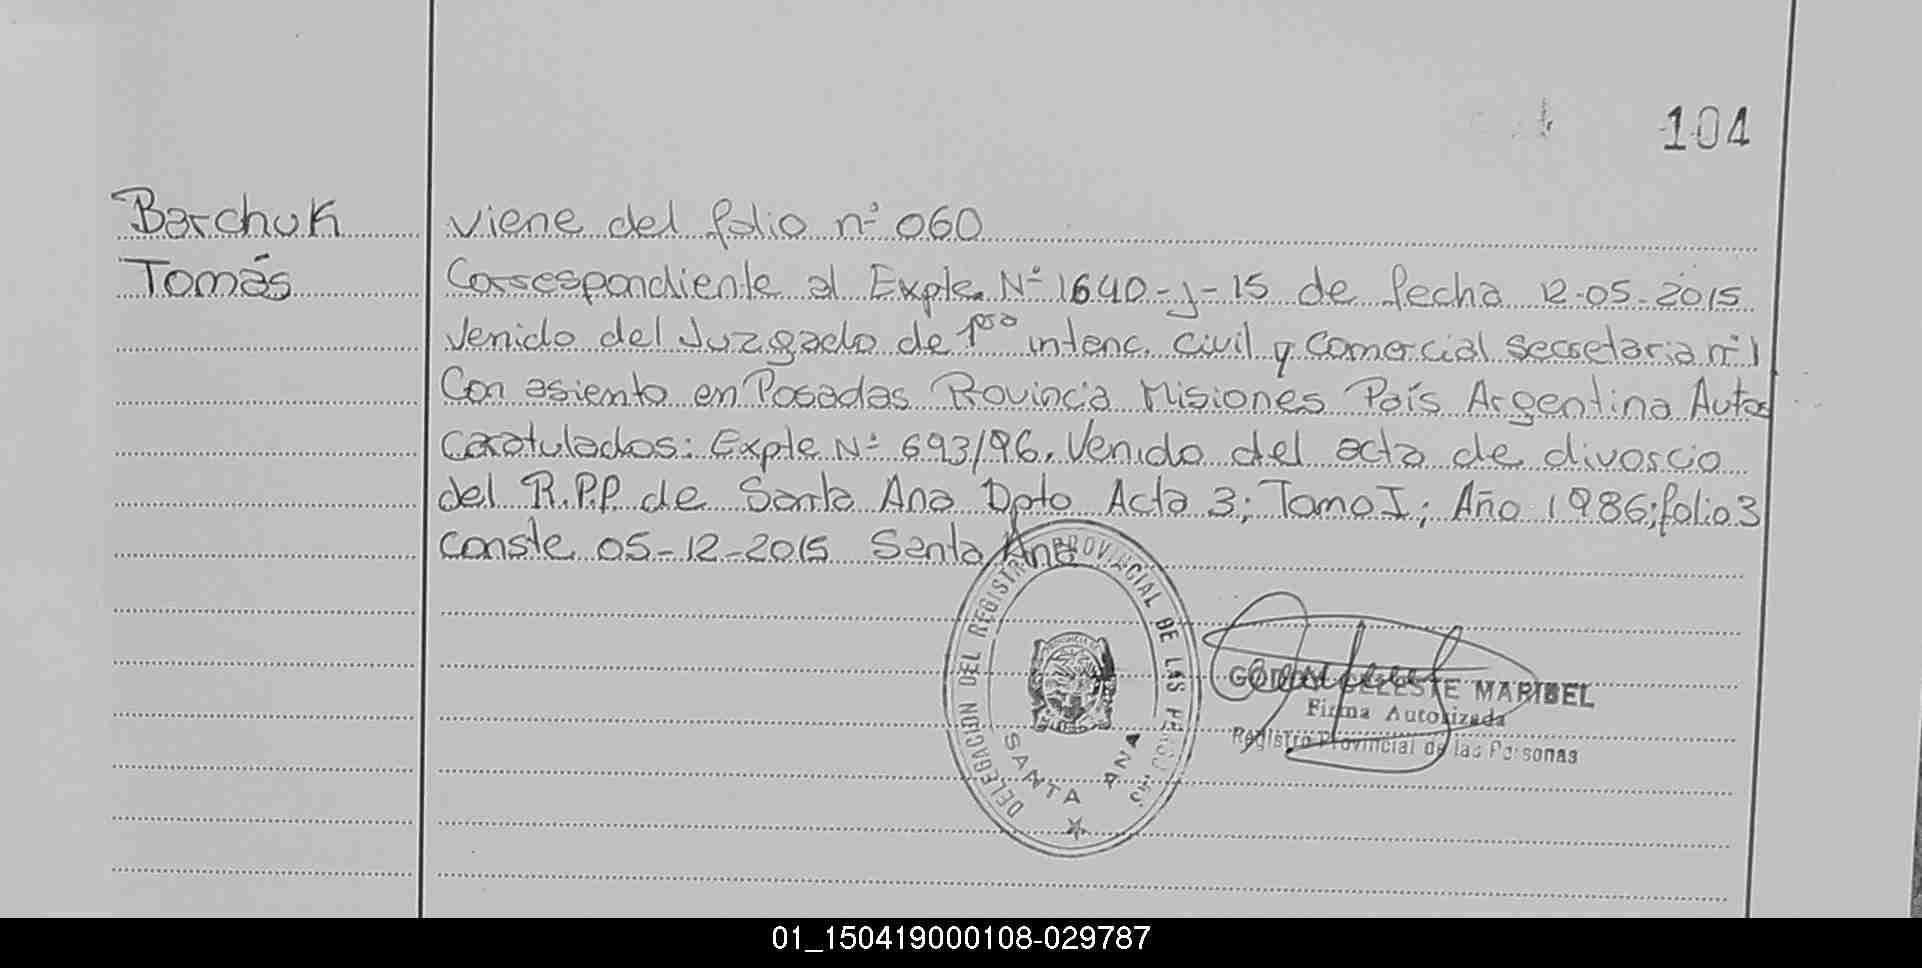 104
Barchuk
Tomás
viene del folio nº 060
Correspondiente al Expte. Nº 1640-J-15 de fecha 12-05-2015
Venido del Juzgado de 1ra intenc. civil y Comercial secretaria nº 1
Con asiento en Posadas Provincia Misiones País Argentina Autos
caratulados: Expte Nº 693/96. Venido del acta de divorcio
del R.P.P. de Santa Ana Dpto Acta 3; Tomo I; Año 1986; folio 3
conste 05-12-2015 Santa Ana
DELEGACION DEL REGISTRO PROVINCIAL DE LAS PERSONAS
SANTA ANA
CELESTE MARIBEL
Firma Autorizada
Registro Provincial de las Personas
01_150419000108-029787